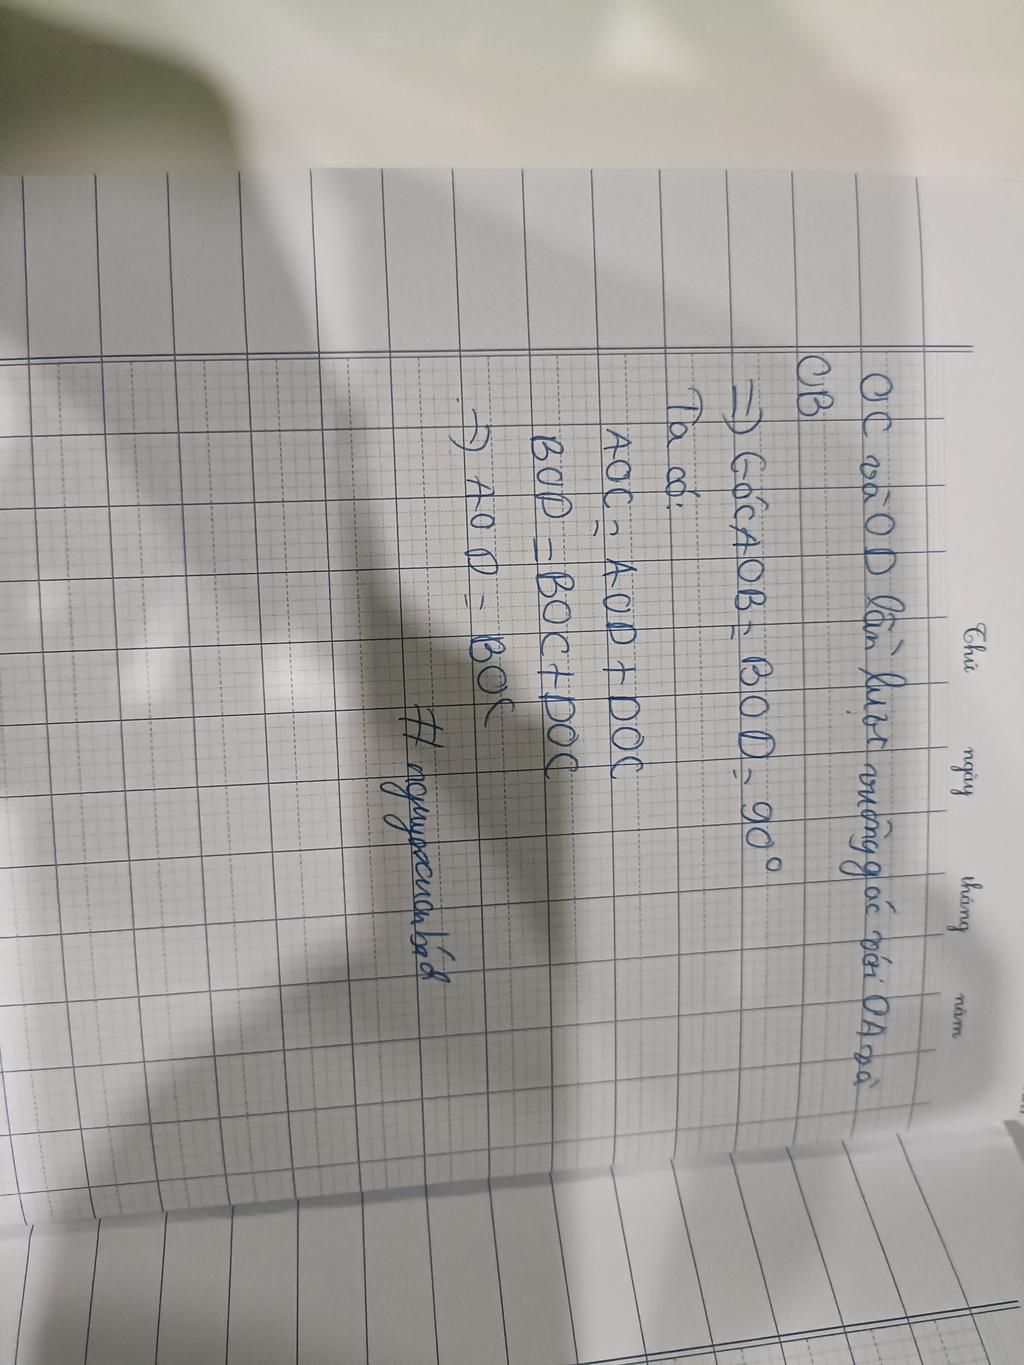 Thứ ngày tháng năm
OC và OD lần lượt vuông góc với OA và
OB
=) Góc AOB = BOD = 90°
Ta có:
AOC = AOD + DOC
BOD = BOC + DOC
=) AOD = BOC